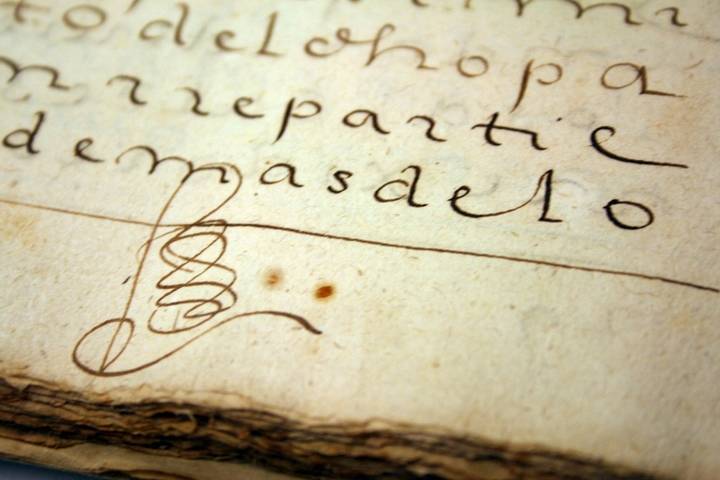 to delchopa
n rrepartie
demas delo